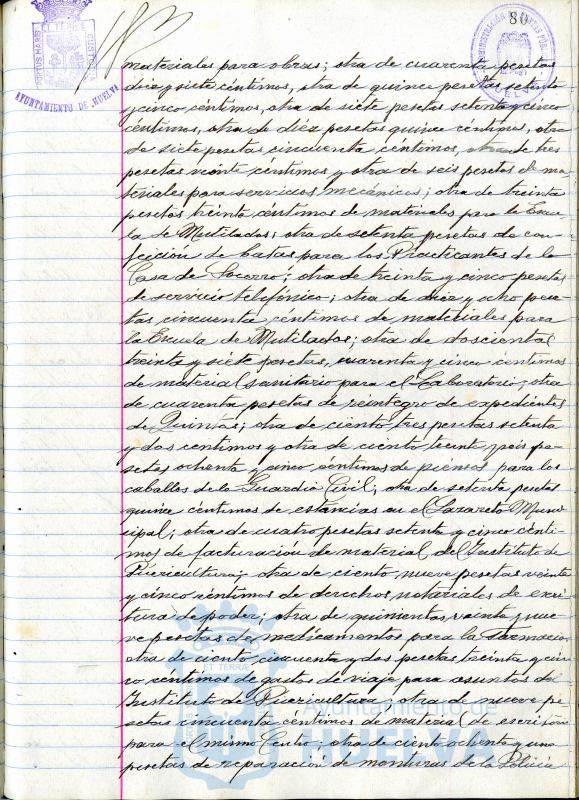 80
AYUNTAMIENTO DE HUELVA
materiales para obras; otra de cuarenta pesetas
diez y siete céntimos, otra de quince pesetas setenta
y cinco céntimos, otra de siete pesetas setenta y cinco
céntimos, otra de diez pesetas quince céntimos, otra
de siete pesetas cincuenta céntimos, otra de tres
pesetas veinte céntimos y otra de seis pesetas de ma
teriales para servicios mecánicos; otra de treinta
pesetas treinta céntimos de materiales para la Escue
la de Mutilados; otra de setenta pesetas de con
fección de batas para los Practicantes de la
Casa de Socorro; otra de treinta y cinco pesetas
de servicio telefónico; otra de diez y ocho pese
tas cincuenta céntimos de materiales para
la Escuela de Mutilados; otra de doscientas
treinta y siete pesetas, cuarenta y cinco céntimos
de material sanitario para el Laboratorio; otra
de cuarenta pesetas de reintegro de expedientes
de Quintas; otra de ciento tres pesetas setenta
y dos céntimos y otra de ciento treinta y seis pe
setas ochenta y cinco céntimos de piensos para los
caballos de la Guardia Civil; otra de setenta pesetas
quince céntimos de estancias en el Lazareto Muni
cipal; otra de cuatro pesetas setenta y cinco cénti
mos de facturación de material del Instituto de
Puericultura; otra de ciento nueve pesetas veinte
y cinco céntimos de derechos notariales de escri
tura de poder; otra de quinientas veinte y nue
ve pesetas de medicamentos para la farmacia;
otra de ciento cincuenta y dos pesetas treinta y cin
co céntimos de gastos de viaje para asuntos del
Instituto de Puericultura; otra de nueve pe
setas cincuenta céntimos de material de escritorio
para el mismo Centro; otra de ciento ochenta y una
pesetas de reparación de monturas de la Policía
Ayuntamiento de
HUELVA